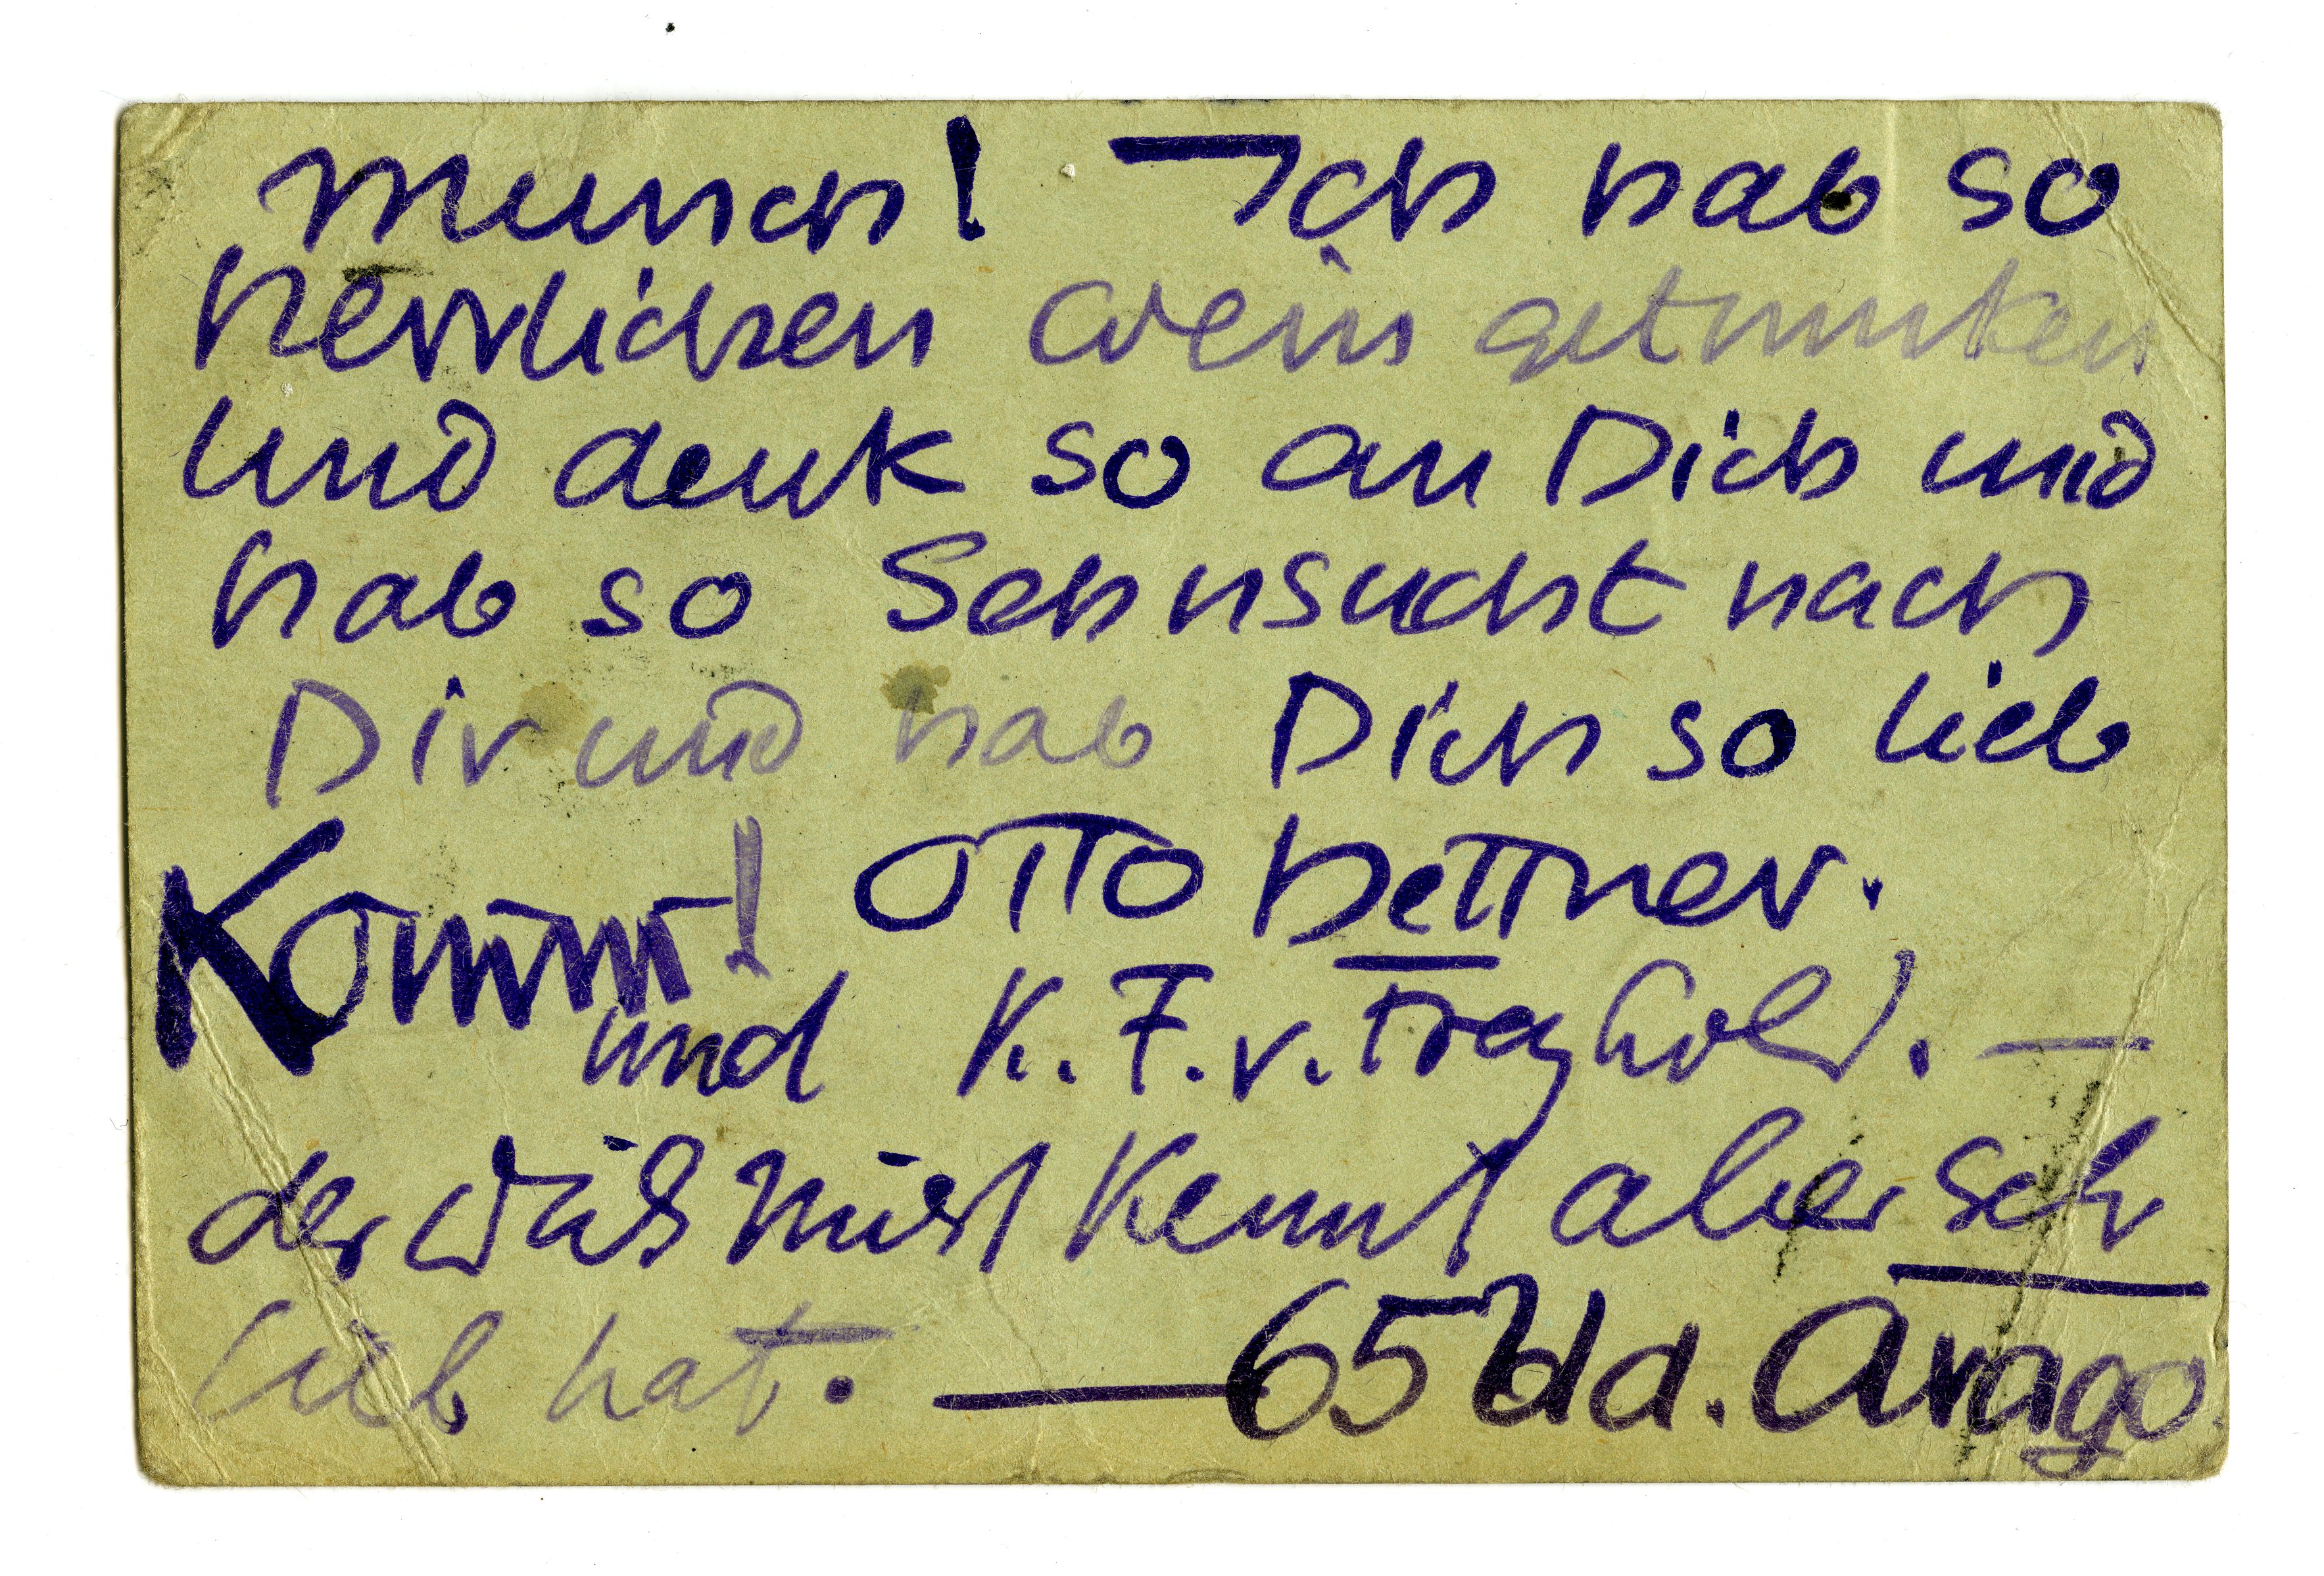 Munch! — Ich hab so
herrlichen Wein getrunken
und denk so an Dich und
hab so Sehnsucht nach
Dir und hab Dich so lieb
Komm! Otto Hettner.
und K. F. v. Freyhold. —
der Dich nicht kennt aber sehr
lieb hat. — 65 Bld. Arago.